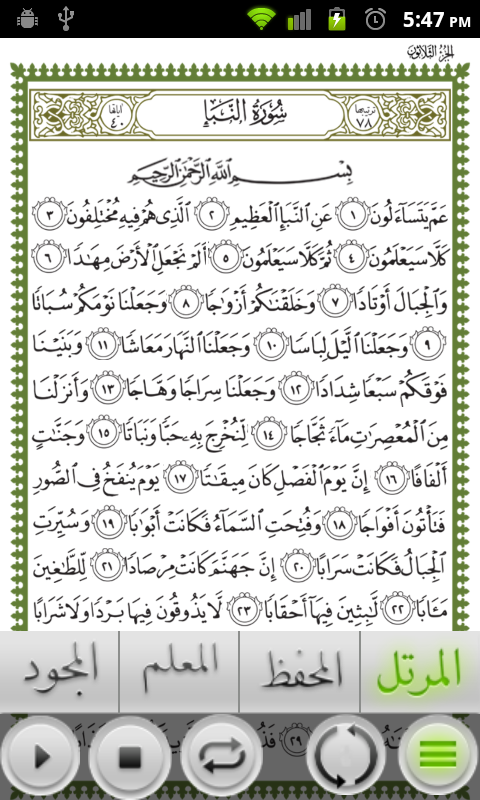 5:47 PM
الجزء الثلاثون
ترتيبها ٧٨ سُورَةُ النَّبَإِ آياتها ٤٠
بِسْمِ اللَّهِ الرَّحْمَٰنِ الرَّحِيمِ
عَمَّ يَتَسَاءَلُونَ ١ عَنِ النَّبَإِ الْعَظِيمِ ٢ الَّذِي هُمْ فِيهِ مُخْتَلِفُونَ ٣
كَلَّا سَيَعْلَمُونَ ٤ ثُمَّ كَلَّا سَيَعْلَمُونَ ٥ أَلَمْ نَجْعَلِ الْأَرْضَ مِهَٰدًا ٦
وَالْجِبَالَ أَوْتَادًا ٧ وَخَلَقْنَٰكُمْ أَزْوَٰجًا ٨ وَجَعَلْنَا نَوْمَكُمْ سُبَاتًا
٩ وَجَعَلْنَا الَّيْلَ لِبَاسًا ١٠ وَجَعَلْنَا النَّهَارَ مَعَاشًا ١١ وَبَنَيْنَا
فَوْقَكُمْ سَبْعًا شِدَادًا ١٢ وَجَعَلْنَا سِرَاجًا وَهَّاجًا ١٣ وَأَنزَلْنَا
مِنَ الْمُعْصِرَٰتِ مَاءً ثَجَّاجًا ١٤ لِّنُخْرِجَ بِهِ حَبًّا وَنَبَاتًا ١٥ وَجَنَّٰتٍ
أَلْفَافًا ١٦ إِنَّ يَوْمَ الْفَصْلِ كَانَ مِيقَٰتًا ١٧ يَوْمَ يُنفَخُ فِي الصُّورِ
فَتَأْتُونَ أَفْوَاجًا ١٨ وَفُتِحَتِ السَّمَاءُ فَكَانَتْ أَبْوَٰبًا ١٩ وَسُيِّرَتِ
الْجِبَالُ فَكَانَتْ سَرَابًا ٢٠ إِنَّ جَهَنَّمَ كَانَتْ مِرْصَادًا ٢١ لِّلطَّٰغِينَ
مَـَٔابًا ٢٢ لَّٰبِثِينَ فِيهَا أَحْقَابًا ٢٣ لَّا يَذُوقُونَ فِيهَا بَرْدًا وَلَا شَرَابًا
المرتل المحفظ المعلم المجود
٢٩